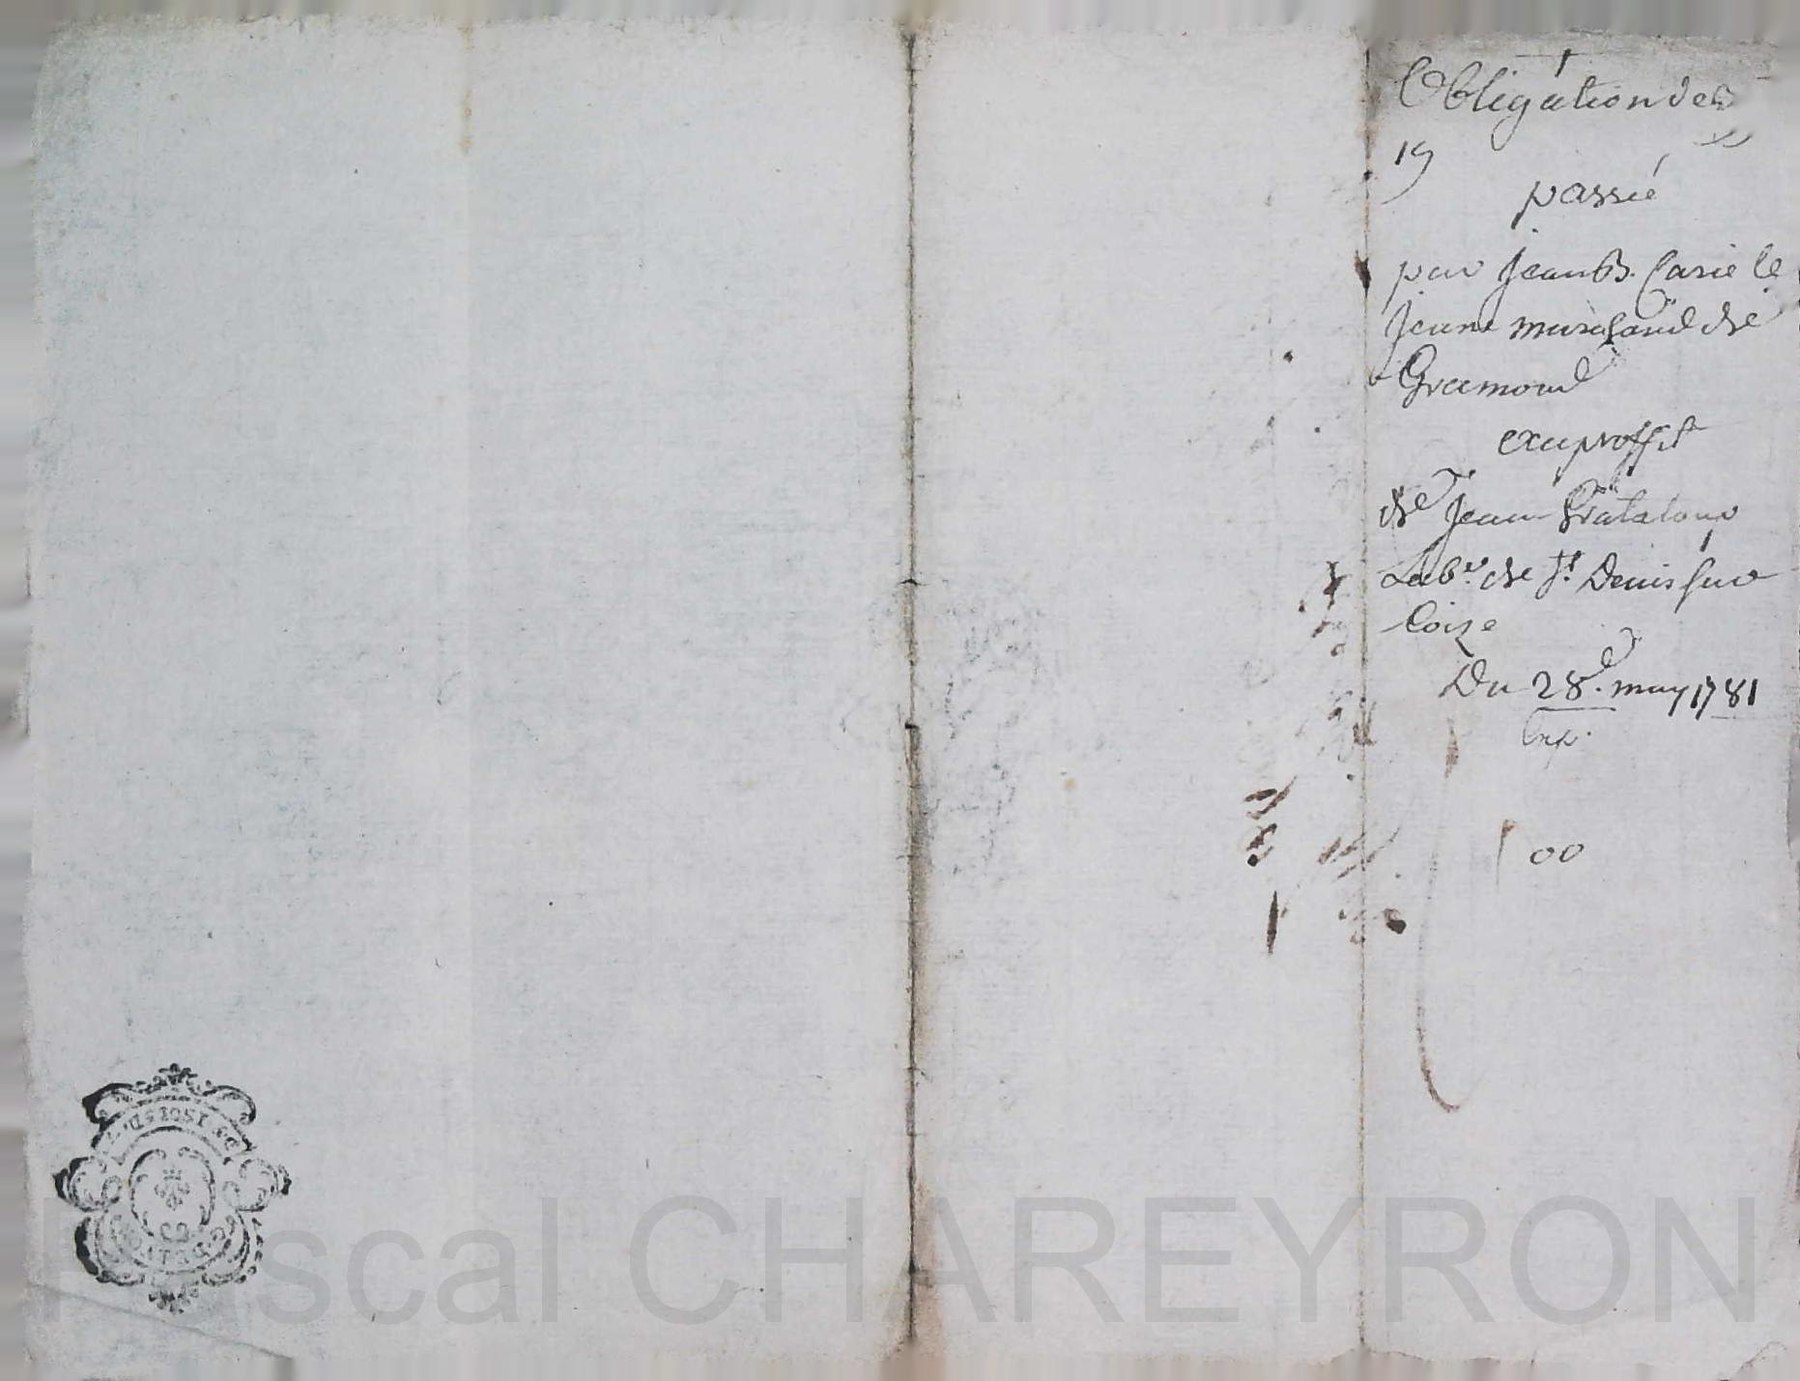 Obligation de
19
passié
par Jean B. Carié le
Jeune marchand de
Gramond
au proffit
de Jean Prataloup
Lab.r de St. Denis sur
Coize
Du 28e. may 1781
Exp.
00
CHAREYRON